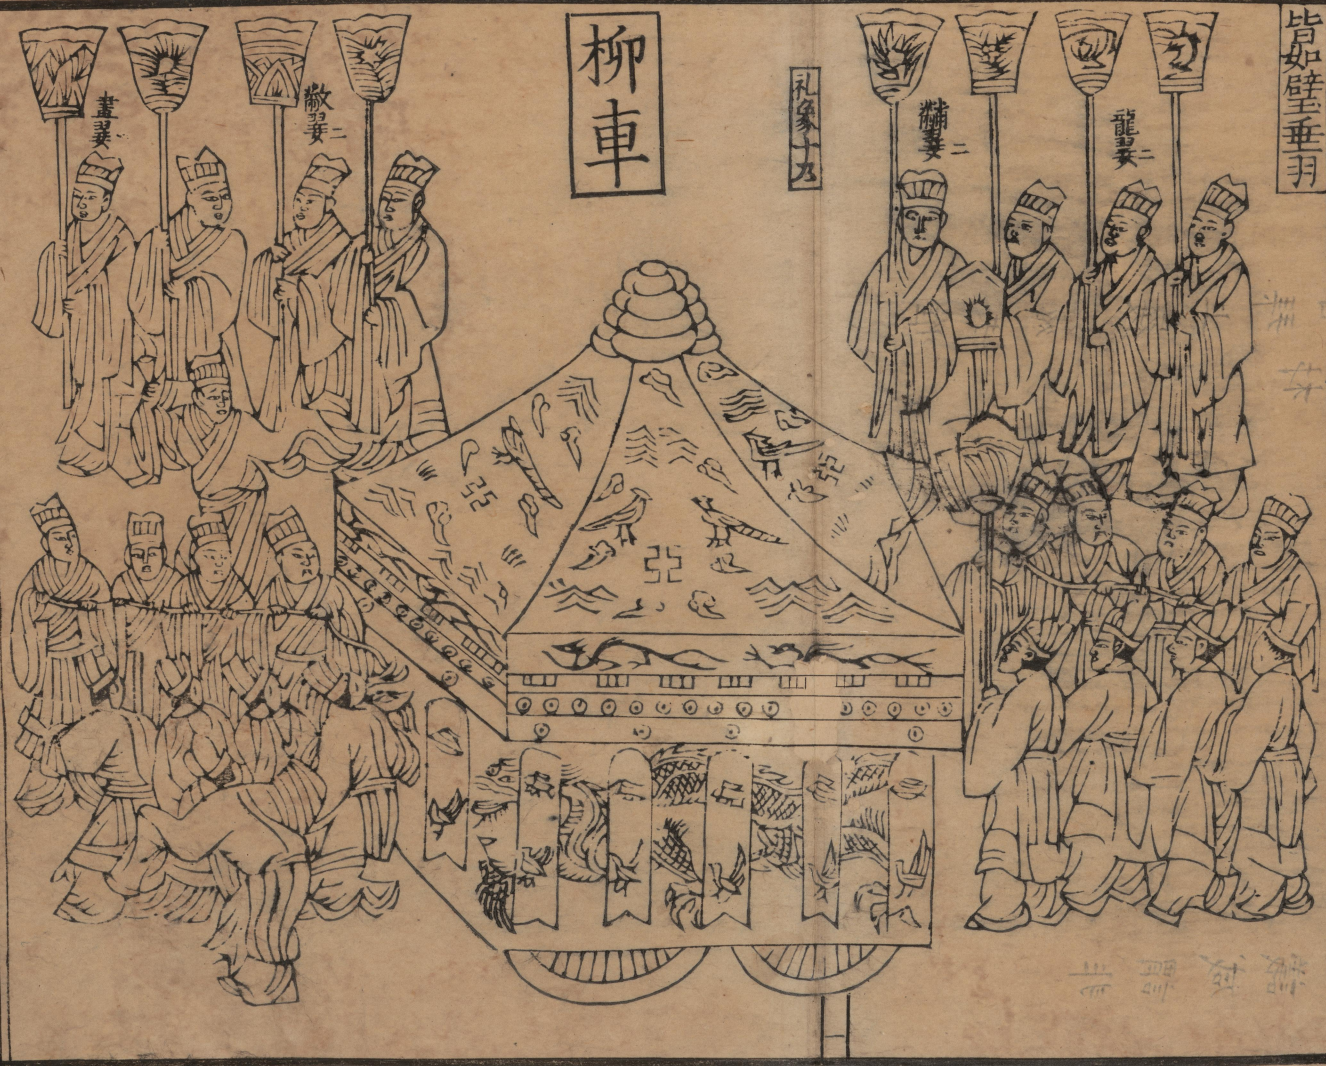 皆如璧垂羽
龍翣二
黼翣二
礼象十
柳車
黻翣二
畫翣